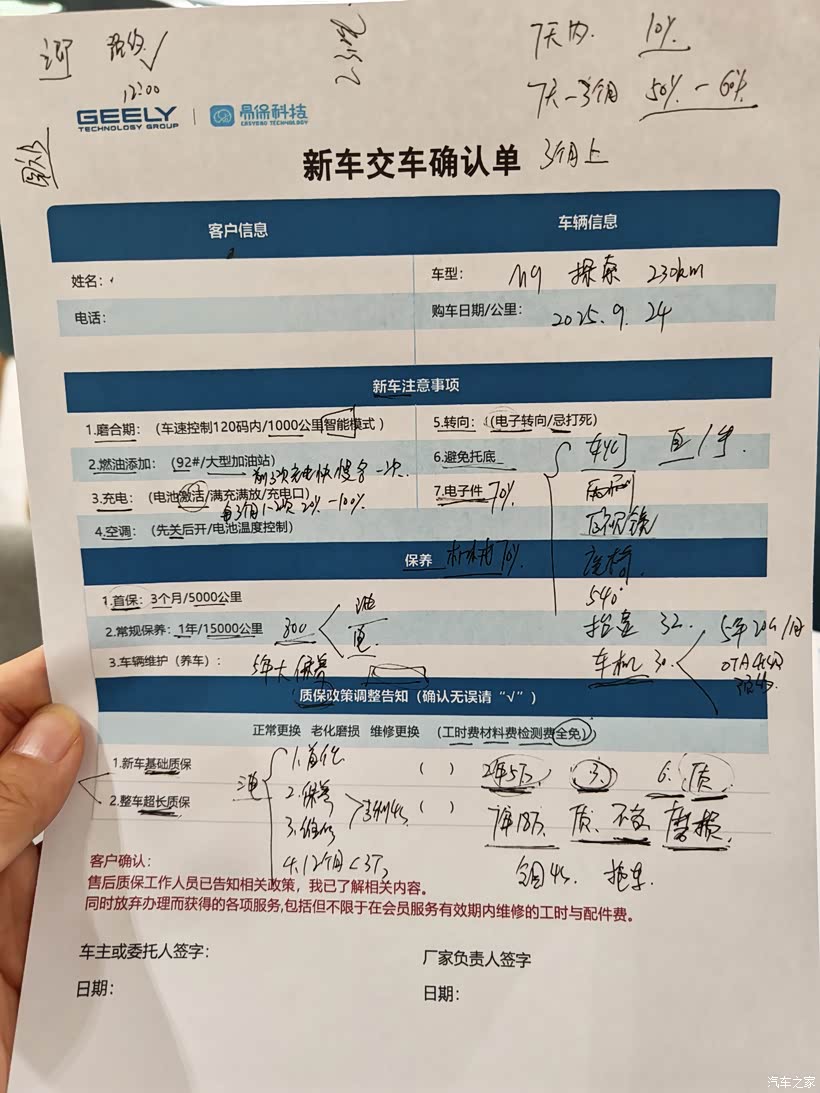 预约√
12:00
7天内 10%
7天-3个月 50%-60%
3个月上
GEELY
TECHNOLOGY GROUP
易保科技
EASYBAO TECHNOLOGY
新车交车确认单
客户信息 车辆信息
姓名: 车型: M9 探索 230km
电话: 购车日期/公里: 2025.9.24
新车注意事项
1.磨合期:(车速控制120码内/1000公里智能模式) 5.转向:(电子转向/忌打死)
2.燃油添加:(92#/大型加油站) 6.避免托底
前3次充电快慢各一次
3.充电:(电池激活/满充满放/充电口) 7.电子件 70%
每3个月1-2次 20%-100%
4.空调:(先关后开/电池温度控制)
座椅
540°
保养 70%
1.首保:3个月/5000公里
2.常规保养:1年/15000公里 300 油 电
3.车辆维护(养车): 5年大保养
车机 30 5年 20G/月
OTA
质保政策调整告知(确认无误请“√”)
正常更换 老化磨损 维修更换 (工时费材料费检测费全免)
1.新车基础质保 ( ) 2年5万 ③ 6. 质
2.整车超长质保 ( ) 7年18万 质 不含 磨损
1.首保
2.保养
3.维修
4.12个月<3万
全国4s
客户确认:
售后质保工作人员已告知相关政策,我已了解相关内容。
同时放弃办理而获得的各项服务,包括但不限于在会员服务有效期内维修的工时与配件费。
车主或委托人签字: 厂家负责人签字
日期: 日期:
汽车之家